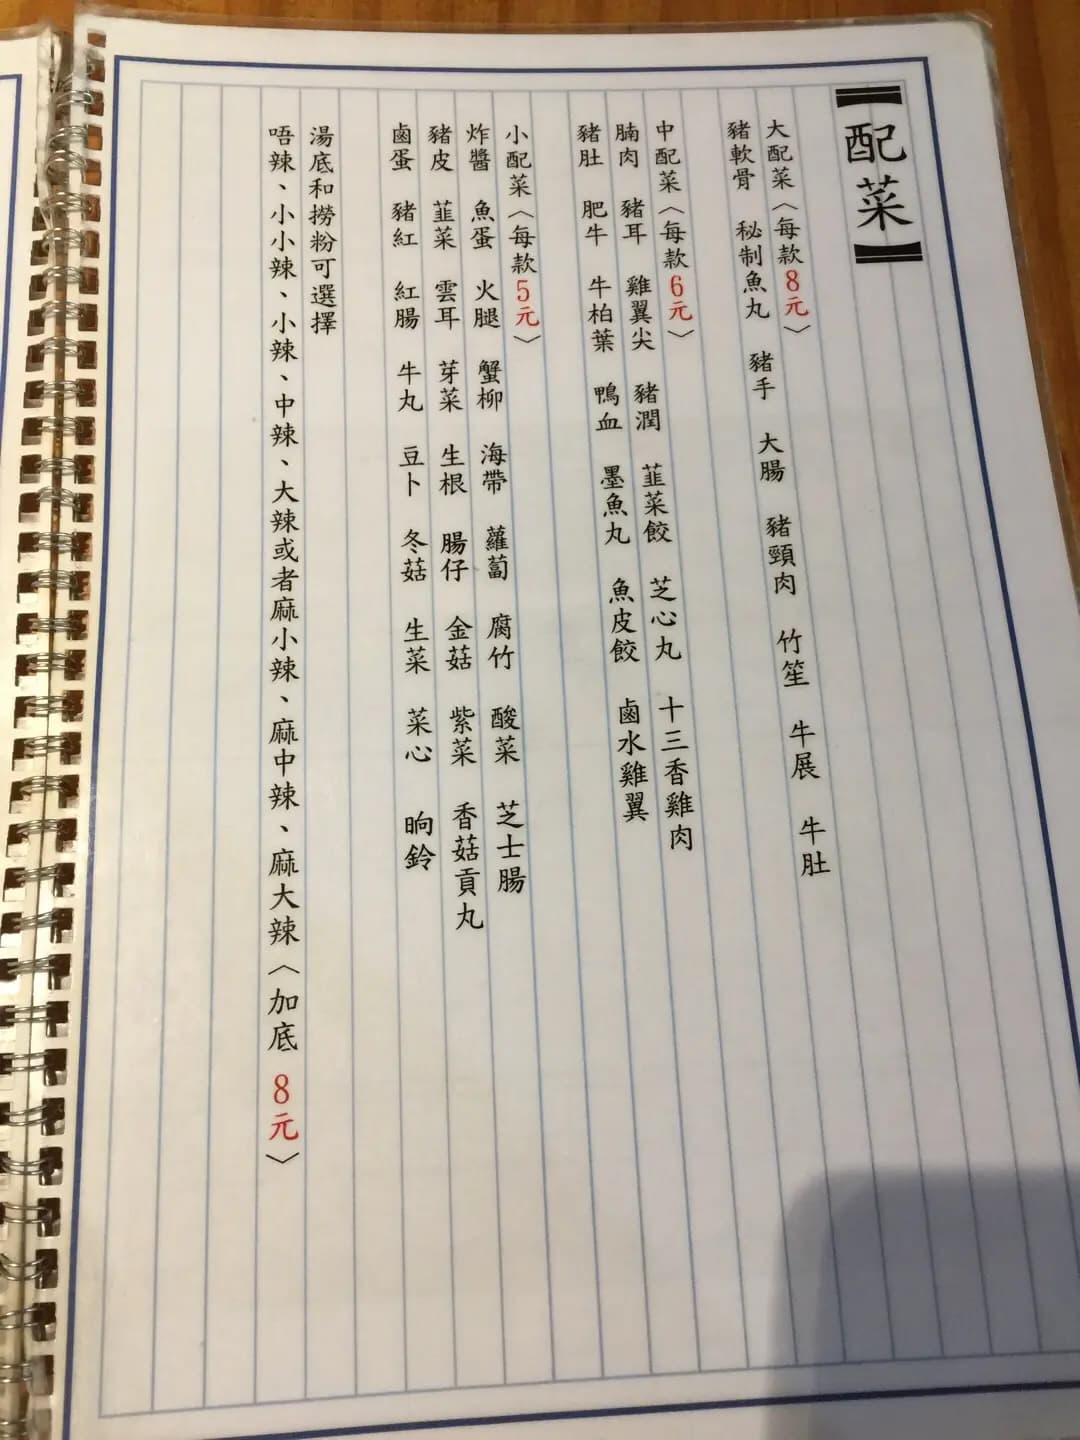 【配菜】
大配菜〈每款8元〉
豬軟骨 秘制魚丸 豬手 大腸 豬頸肉 竹笙 牛展 牛肚
中配菜〈每款6元〉
腩肉 豬耳 雞翼尖 豬潤 韮菜餃 芝心丸 十三香雞肉
豬肚 肥牛 牛柏葉 鴨血 墨魚丸 魚皮餃 鹵水雞翼
小配菜〈每款5元〉
炸醬 魚蛋 火腿 蟹柳 海帶 蘿蔔 腐竹 酸菜 芝士腸
豬皮 韮菜 雲耳 芽菜 生根 腸仔 金菇 紫菜 香菇貢丸
鹵蛋 豬紅 紅腸 牛丸 豆卜 冬菇 生菜 菜心 晌鈴
湯底和撈粉可選擇
唔辣、小小辣、小辣、中辣、大辣或者麻小辣、麻中辣、麻大辣〈加底 8元〉